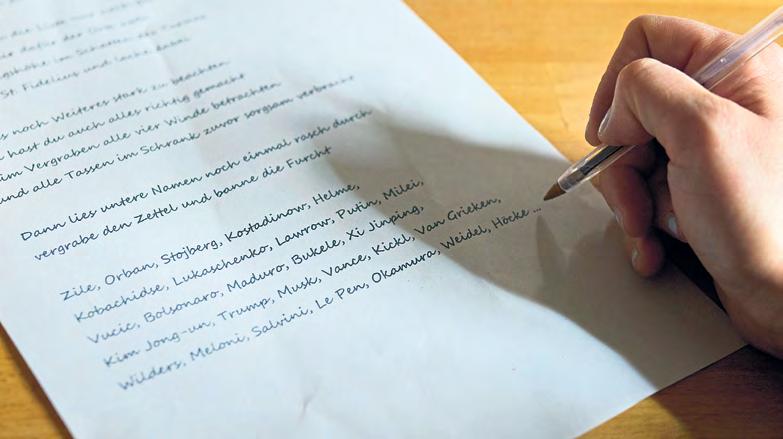 dafür der
St. Fidelius und lache dabei
noch Weiteres stark zu beachten
hast du auch alles richtig gemacht
im Vergraben alle vier Winde betrachten
und alle Tassen im Schrank zuvor sorgsam verbracht
Dann lies untere Namen noch einmal rasch durch
vergrabe den Zettel und banne die Furcht
Zile, Orban, Stojberg, Kostadinow, Helme,
Kobachidse, Lukaschenko, Lawrow, Putin, Milei,
Vucic, Bolsonaro, Maduro, Bukele, Xi Jinping,
Kim Jong-un, Trump, Musk, Vance, Kickl, Van Grieken,
Wilders, Meloni, Salvini, Le Pen, Okamura, Weidel, Höcke ...